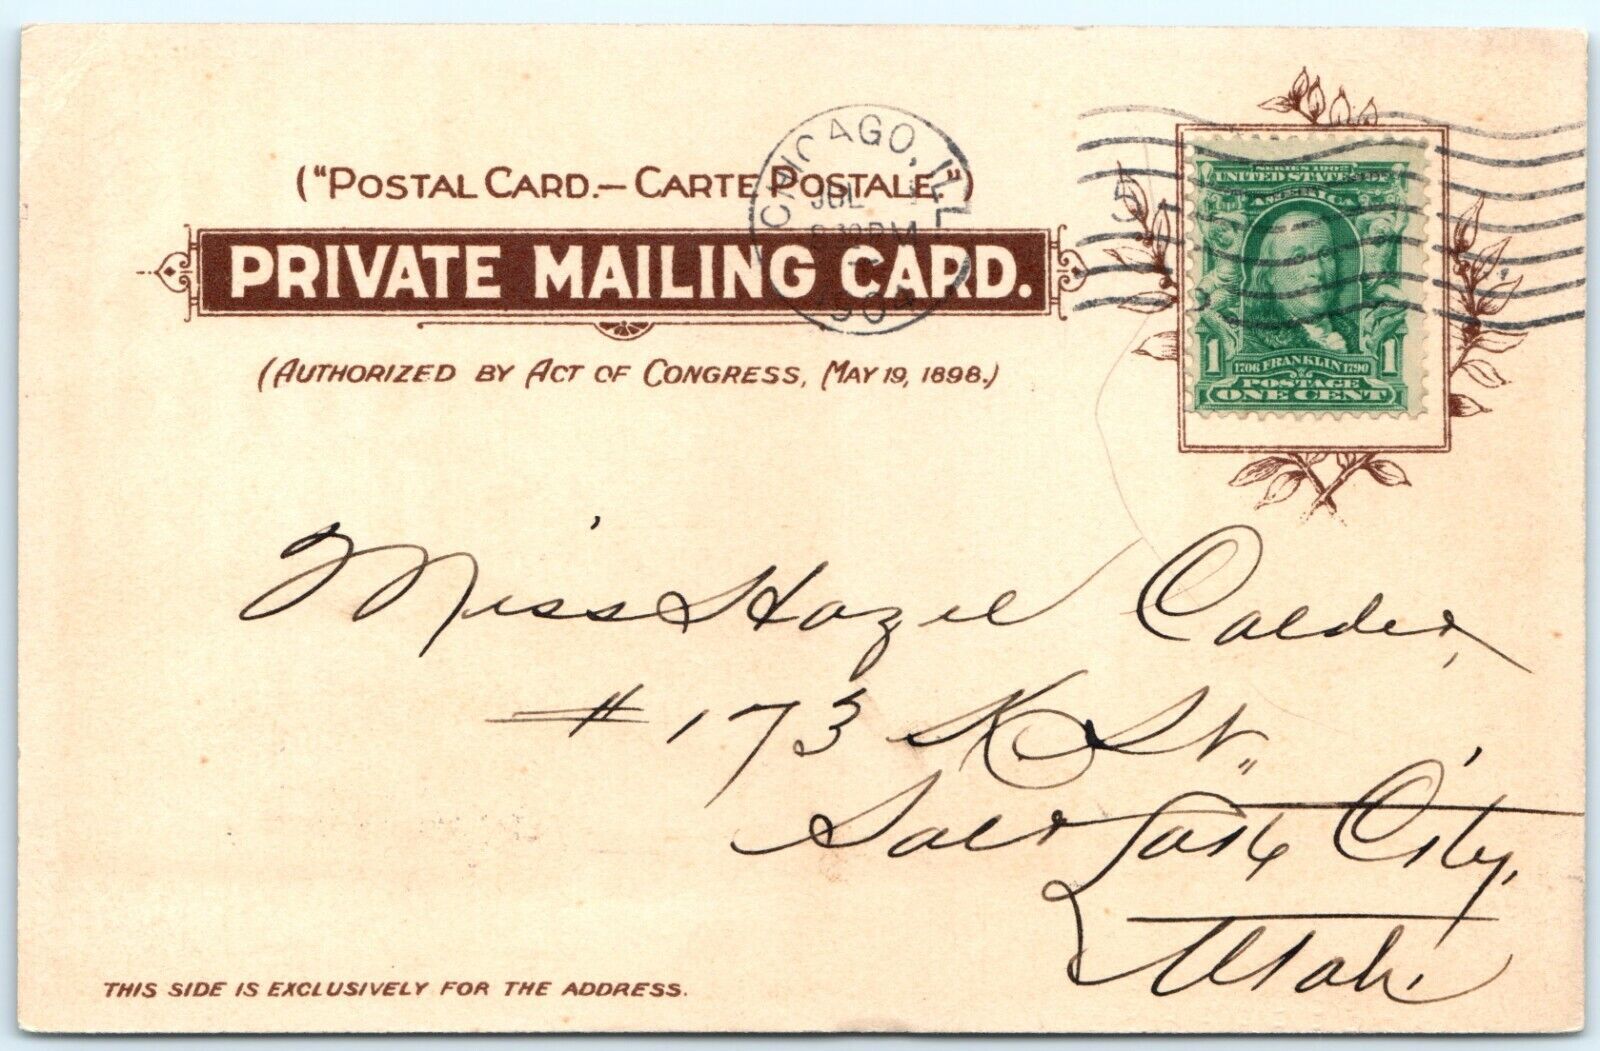 ("POSTAL CARD.— CARTE POSTALE")
PRIVATE MAILING CARD.
(AUTHORIZED BY ACT OF CONGRESS, MAY 19, 1898.)
CHICAGO, ILL
JUL
PM
1904
5
SERIES 1902
UNITED STATES OF
AMERICA
1 1
1706 FRANKLIN 1790
POSTAGE
ONE CENT
Miss Hazel Calder,
# 173 K St.
Salt Lake City,
Utah.
THIS SIDE IS EXCLUSIVELY FOR THE ADDRESS.